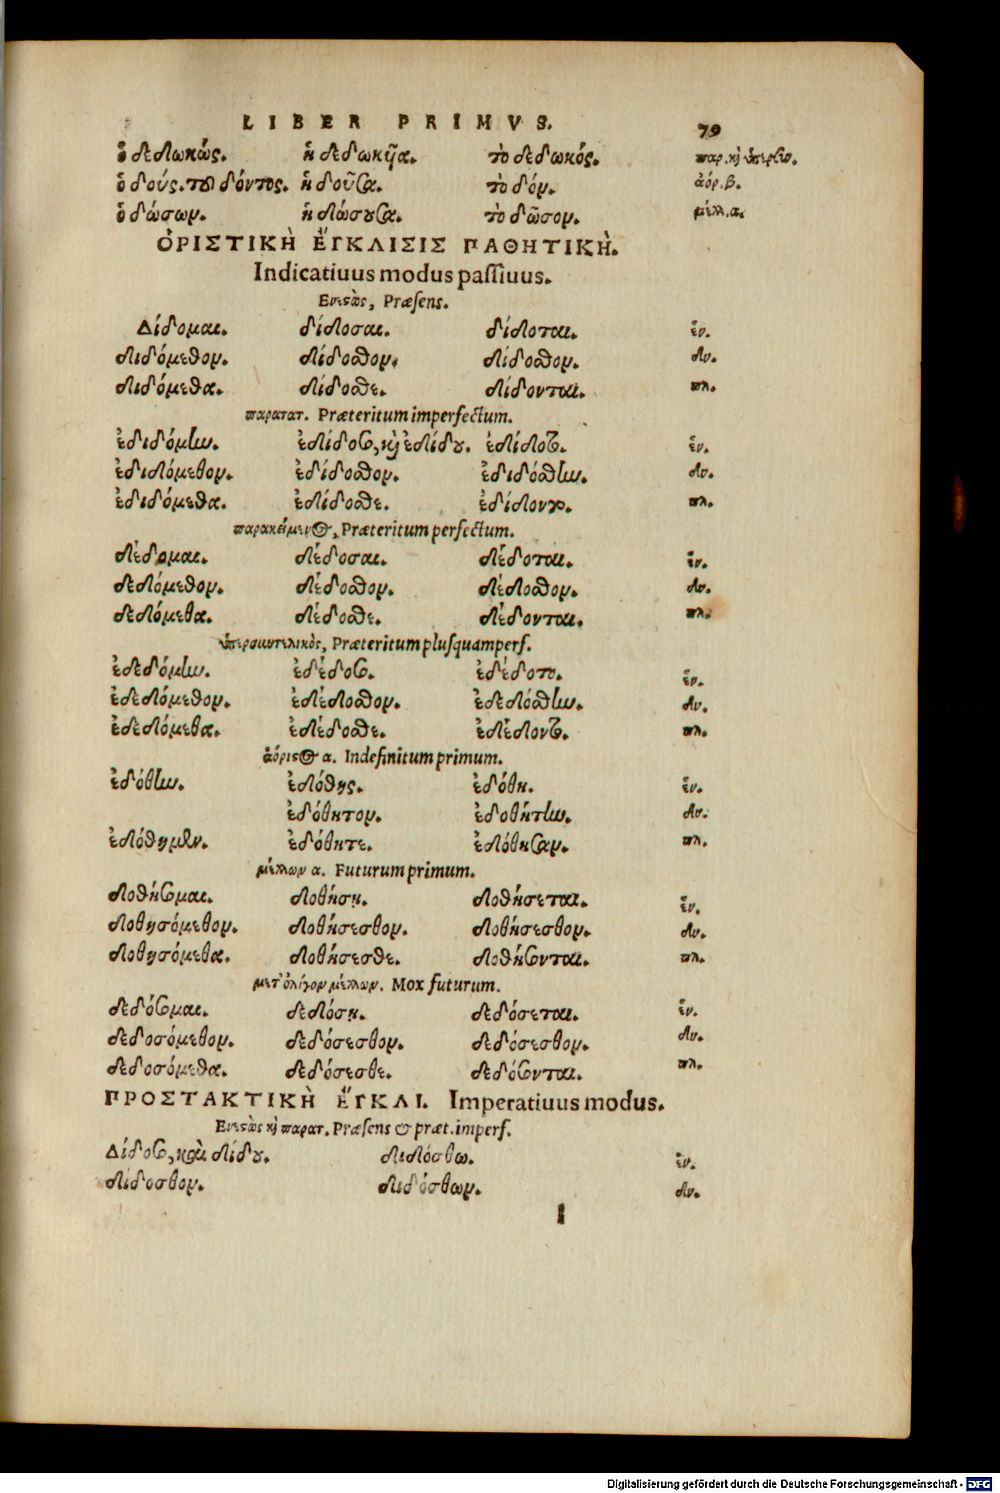 LIBER PRIMVS. 79
ὁ δεδωκώς. ἡ δεδωκῦα. τὸ δεδωκός. παρ. κὶ ὑπερσω.
ὁ δούς. τοῦ δόντος. ἡ δοῦσα. τὸ δόν. ἀόρ. β.
ὁ δώσων. ἡ δώσουσα. τὸ δῶσον. μέλλ. α.
ὉΡΙΣΤΙΚῊ ἜΓΚΛΙΣΙΣ ΠΑΘΗΤΙΚΉ.
Indicatiuus modus passiuus.
Ενεστὼς, Præsens.
Δίδομαι. δίδοσαι. δίδοται. ἑν.
διδόμεθον. δίδοσθον. δίδοσθον. δυ.
διδόμεθα. δίδοσθε. δίδονται. πλ.
παρατατ. Præteritum imperfectum.
ἐδιδόμην. ἐδίδοσο, καὶ ἐδίδου. ἐδίδοτο. ἑν.
ἐδιδόμεθον. ἐδίδοσθον. ἐδιδόσθην. δυ.
ἐδιδόμεθα. ἐδίδοσθε. ἐδίδοντο. πλ.
παρακείμενος, Præteritum perfectum.
δέδομαι. δέδοσαι. δέδοται. ἑν.
δεδόμεθον. δέδοσθον. δέδοσθον. δυ.
δεδόμεθα. δέδοσθε. δέδονται. πλ.
ὑπερσυντελικὸς, Præteritum plusquamperf.
ἐδεδόμην. ἐδέδοσο. ἐδέδοτο. ἑν.
ἐδεδόμεθον. ἐδέδοσθον. ἐδεδόσθην. δυ.
ἐδεδόμεθα. ἐδέδοσθε. ἐδέδοντο. πλ.
ἀόριστος α. Indefinitum primum.
ἐδόθην. ἐδόθης. ἐδόθη. ἑν.
ἐδόθητον. ἐδοθήτην. δυ.
ἐδόθημεν. ἐδόθητε. ἐδόθησαν. πλ.
μέλλων α. Futurum primum.
δοθήσομαι. δοθήσῃ. δοθήσεται. ἑν.
δοθησόμεθον. δοθήσεσθον. δοθήσεσθον. δυ.
δοθησόμεθα. δοθήσεσθε. δοθήσονται. πλ.
μετ' ὀλίγον μέλλων. Mox futurum.
δεδόσομαι. δεδόσῃ. δεδόσεται. ἑν.
δεδοσόμεθον. δεδόσεσθον. δεδόσεσθον. δυ.
δεδοσόμεθα. δεδόσεσθε. δεδόσονται. πλ.
ΠΡΟΣΤΑΚΤΙΚῊ ἜΓΚΛΙ. Imperatiuus modus.
Ενεστὼς καὶ παρατ. Præsens & præt. imperf.
Δίδοσο, καὶ δίδου. διδόσθω. ἑν.
δίδοσθον. διδόσθων. δυ.
I
Digitalisierung gefördert durch die Deutsche Forschungsgemeinschaft - DFG